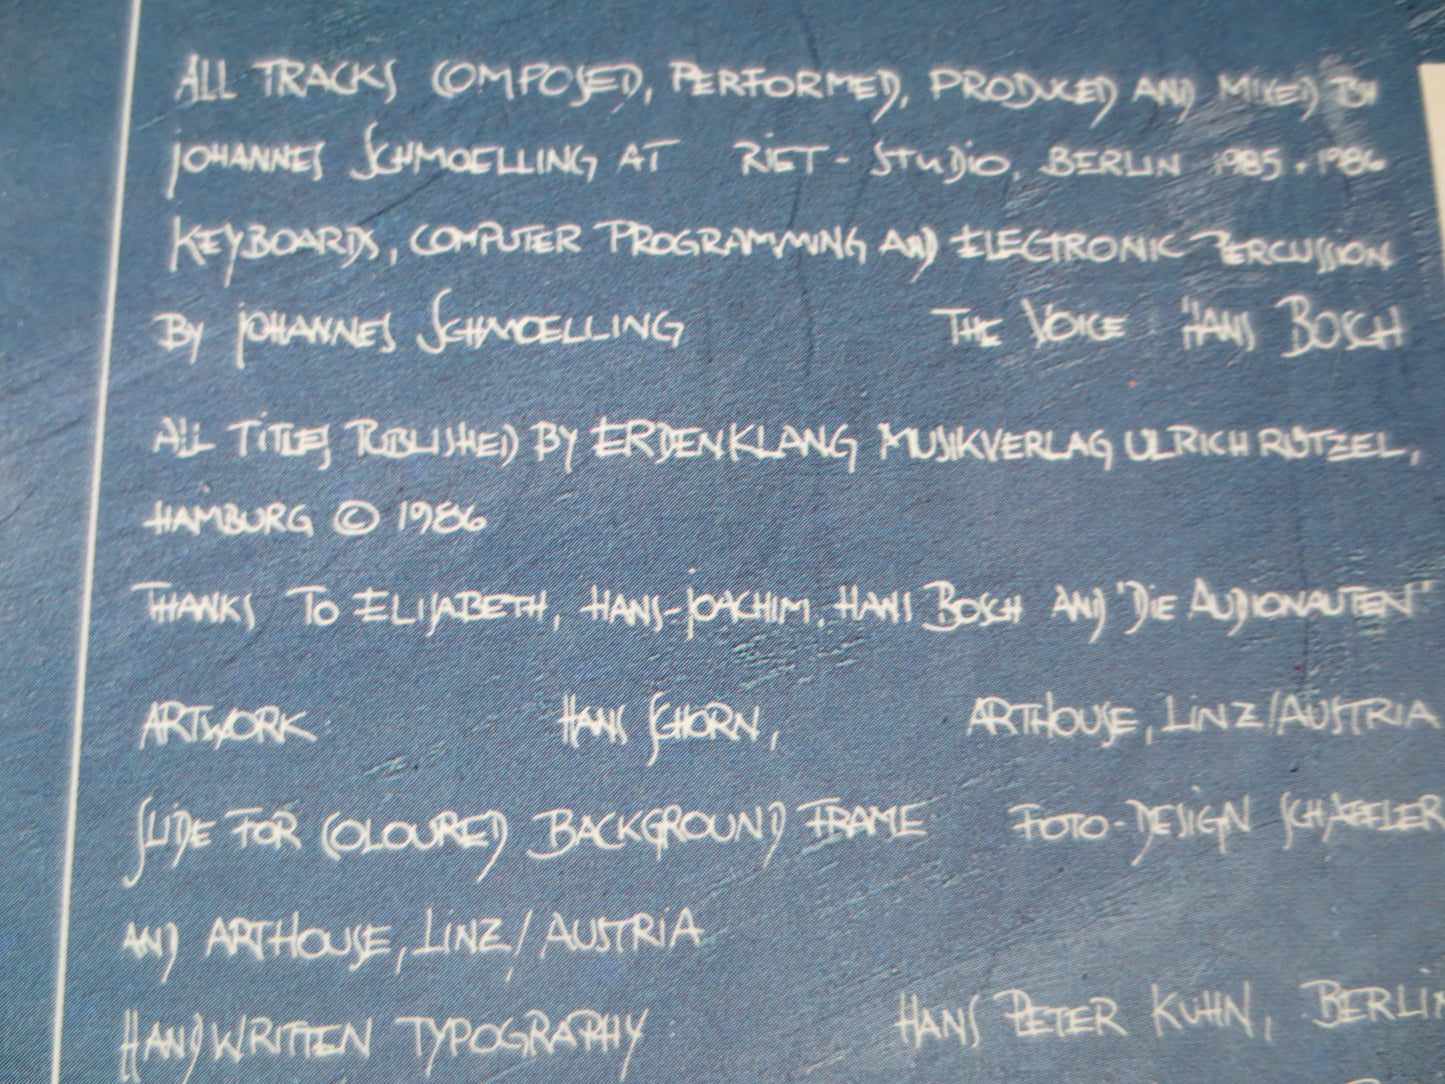 ALL TRACKS COMPOSED, PERFORMED, PRODUCED AND MIXED BY
JOHANNES SCHMOELLING AT RIET-STUDIO, BERLIN 1985 + 1986
KEYBOARDS, COMPUTER PROGRAMMING AND ELECTRONIC PERCUSSION
BY JOHANNES SCHMOELLING THE VOICE : HANS BOSCH
ALL TITLES PUBLISHED BY ERDENKLANG MUSIKVERLAG ULRICH RÜTZEL,
HAMBURG © 1986
THANKS TO ELISABETH, HANS-JOACHIM, HANS BOSCH AND "DIE AUDIONAUTEN"
ARTWORK: HANS SCHORN, ARTHOUSE, LINZ/AUSTRIA
SLIDE FOR COLOURED BACKGROUND FRAME: FOTO-DESIGN SCHÄFFLER
AND ARTHOUSE, LINZ/AUSTRIA
HANDWRITTEN TYPOGRAPHY: HANS PETER KUHN, BERLIN